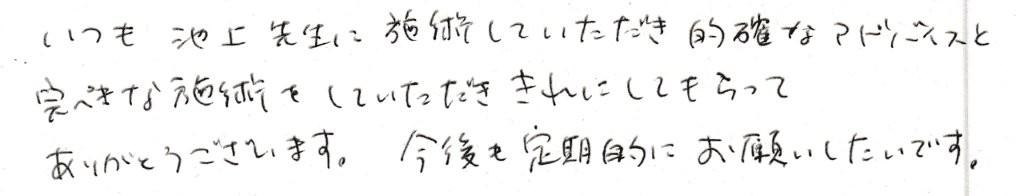 いつも 池上先生に施術していただき 的確なアドバイスと
完ぺきな施術をしていただき きれいにしてもらって
ありがとうございます。 今後も定期的にお願いしたいです。